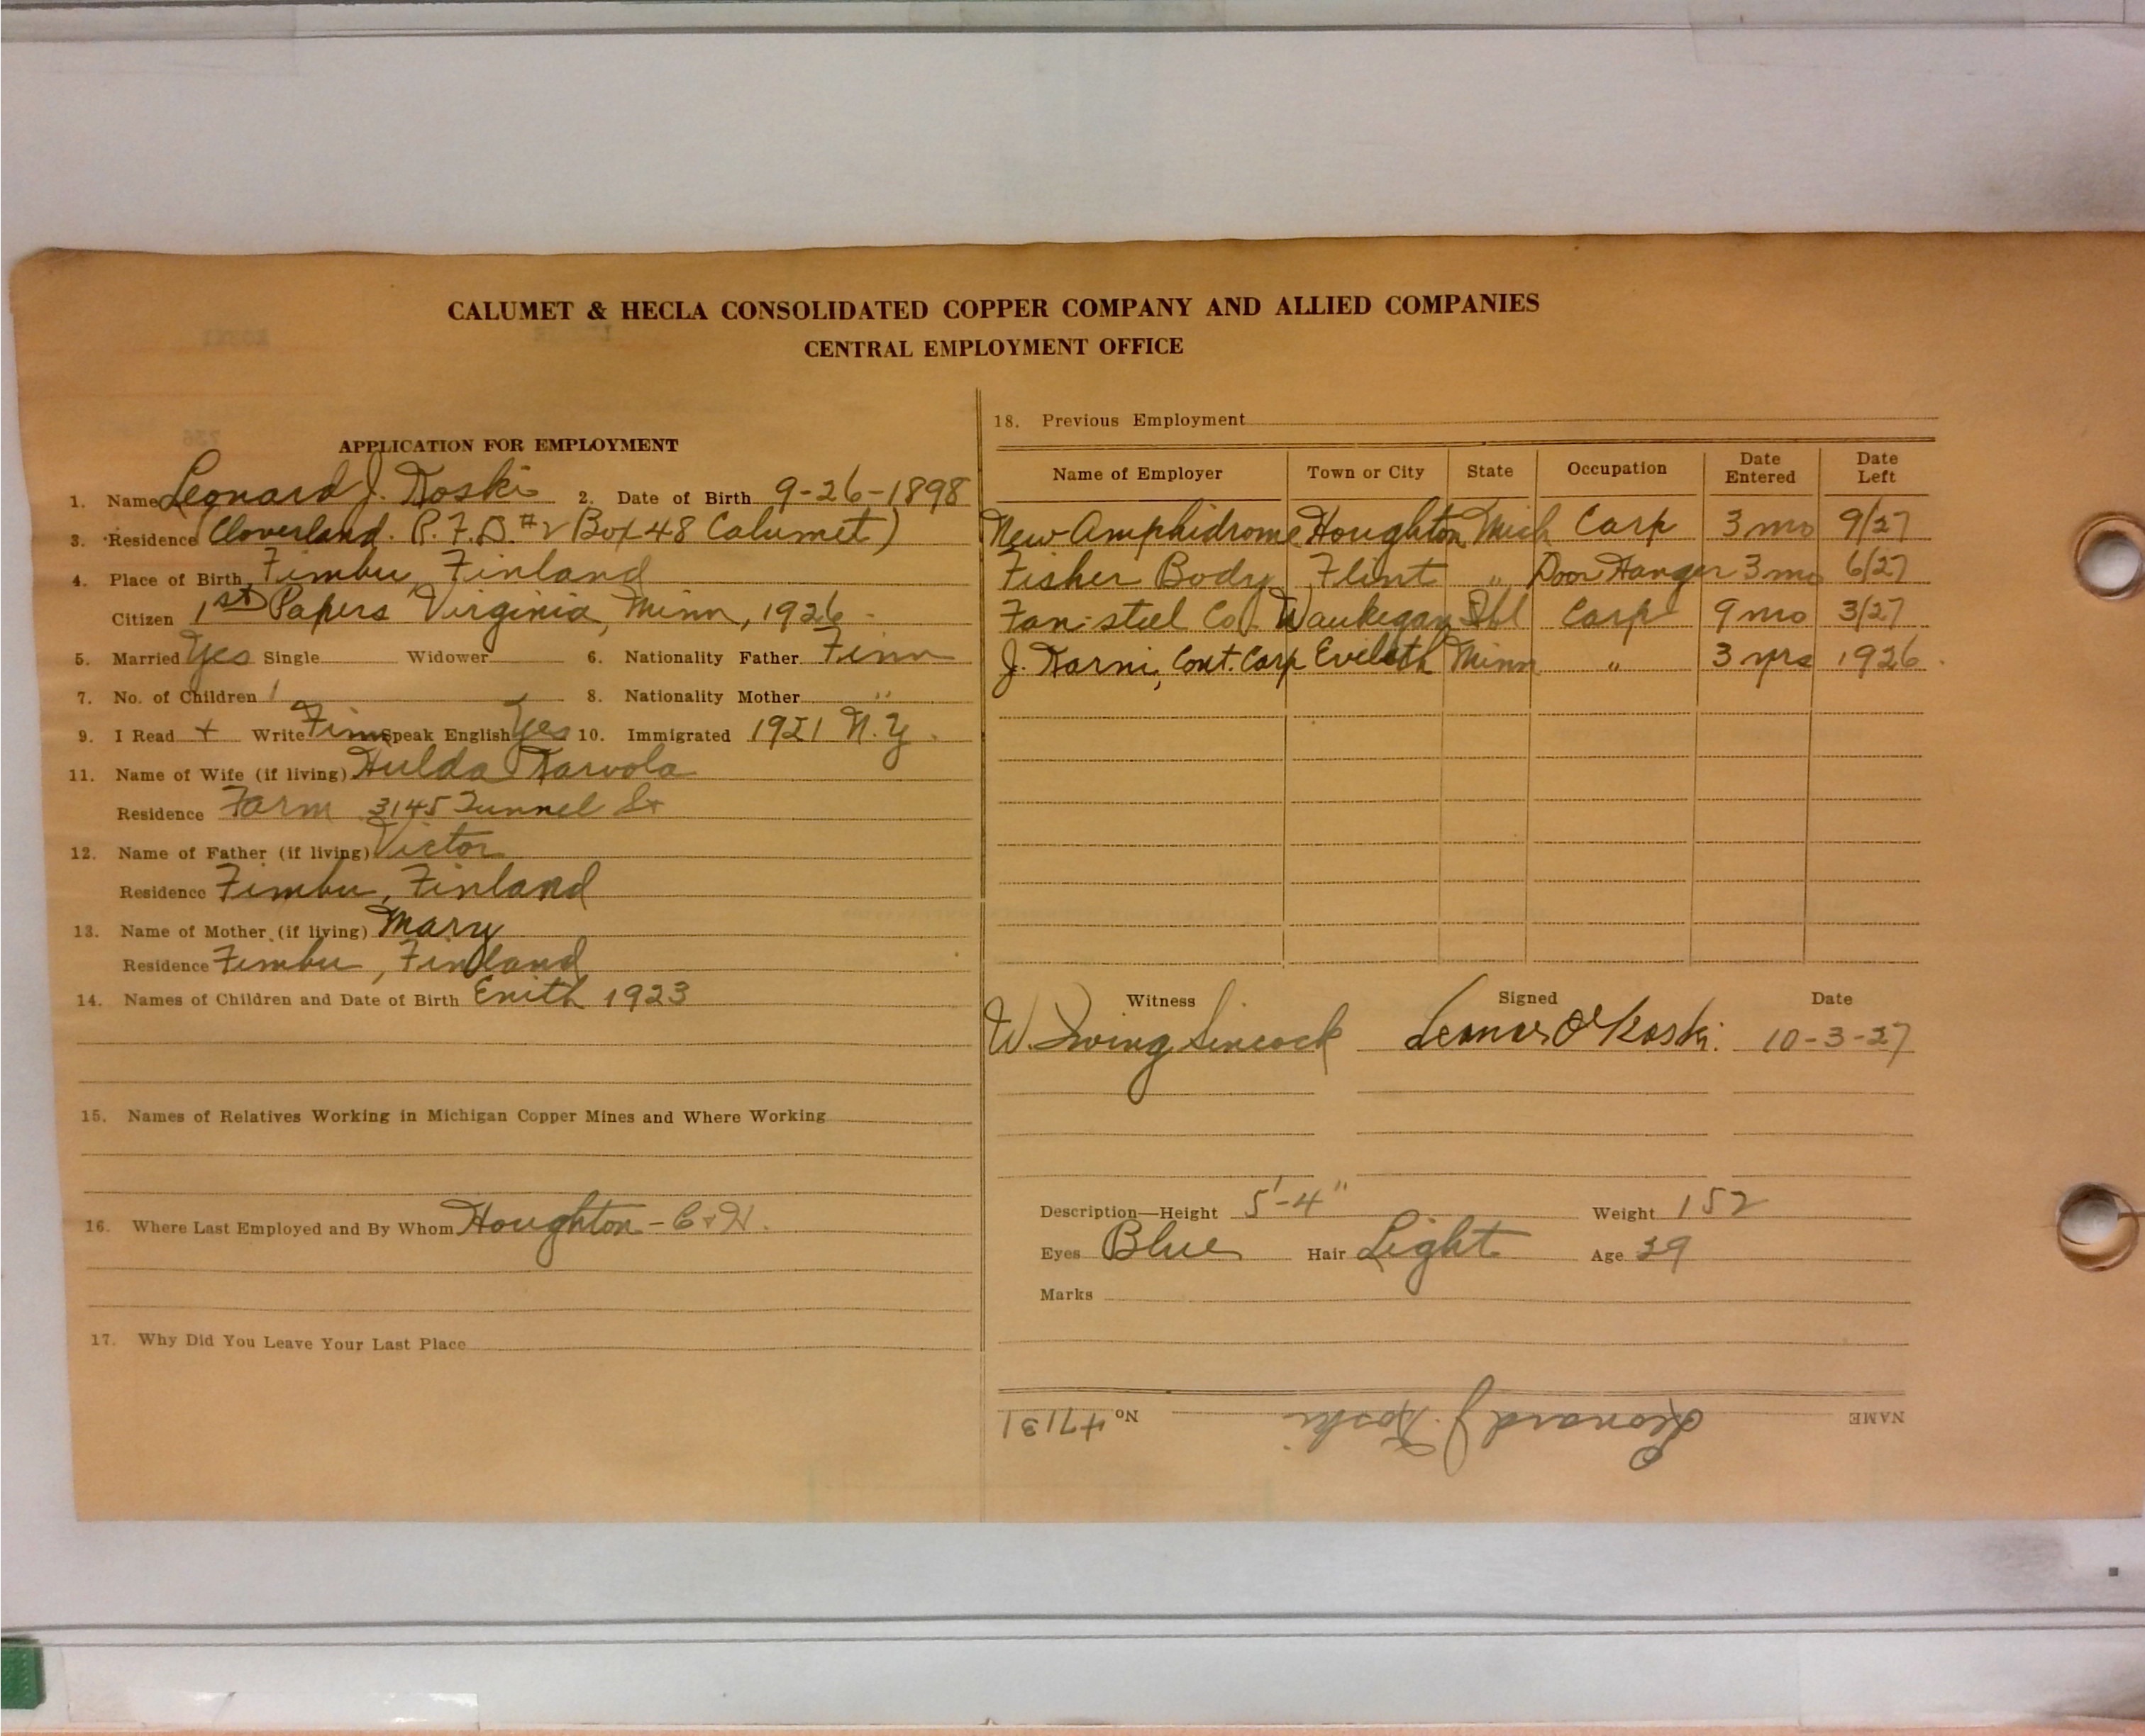 CALUMET & HECLA CONSOLIDATED COPPER COMPANY AND ALLIED COMPANIES
CENTRAL EMPLOYMENT OFFICE
APPLICATION FOR EMPLOYMENT
1. Name Leonard J. Koski 2. Date of Birth 9-26-1898
3. Residence (Cloverland. R.F.D. #2 Box 48 Calumet)
4. Place of Birth Fimbu, Finland
Citizen 1st Papers Virginia, Minn, 1926
5. Married Yes Single Widower 6. Nationality Father Finn
7. No. of Children 1 8. Nationality Mother "
9. I Read + Write Finn Speak English Yes 10. Immigrated 1921 N.Y.
11. Name of Wife (if living) Hulda Karvola
Residence Farm 3145 Tunnel St
12. Name of Father (if living) Victor
Residence Fimbu, Finland
13. Name of Mother (if living) Mary
Residence Fimbu, Finland
14. Names of Children and Date of Birth Enith 1923
15. Names of Relatives Working in Michigan Copper Mines and Where Working
16. Where Last Employed and By Whom Houghton - C & H.
17. Why Did You Leave Your Last Place
18. Previous Employment
Name of Employer Town or City State Occupation Date Entered Date Left
New Amphidrome Houghton Mich Carp 3 mo 9/27
Fisher Body Flint " Door Hanger 3 mo 6/27
Fan-steel Co. Waukegan Ill Carp 9 mo 3/27
J. Karni, Cont. Carp Eveleth Minn " 3 yrs 1926
Witness Signed Date
W. Irving Sincock Leonard Koski 10-3-27
Description—Height 5'-4" Weight 152
Eyes Blue Hair Light Age 29
Marks
NAME Leonard J. Koski No 47131